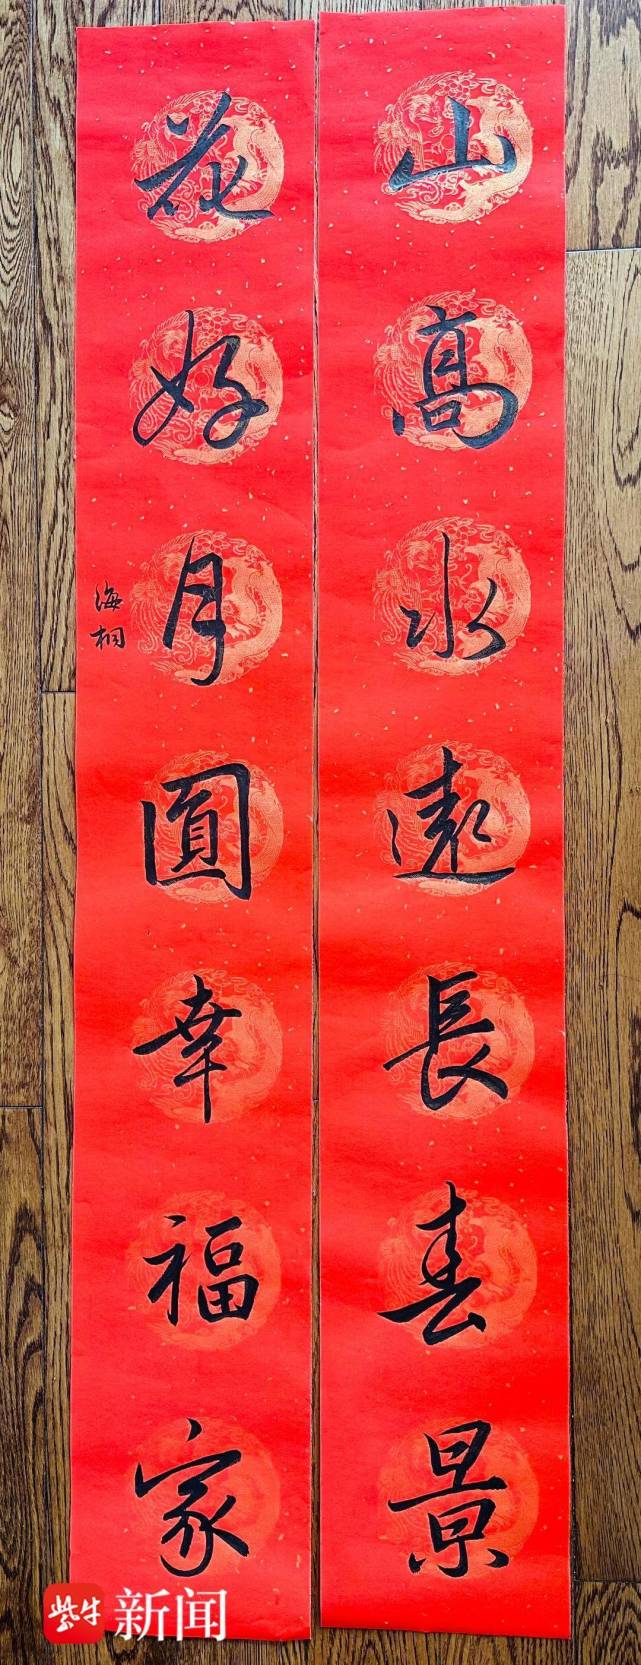 山高水遠長春景
花好月圓幸福家
海桐
紫牛新闻